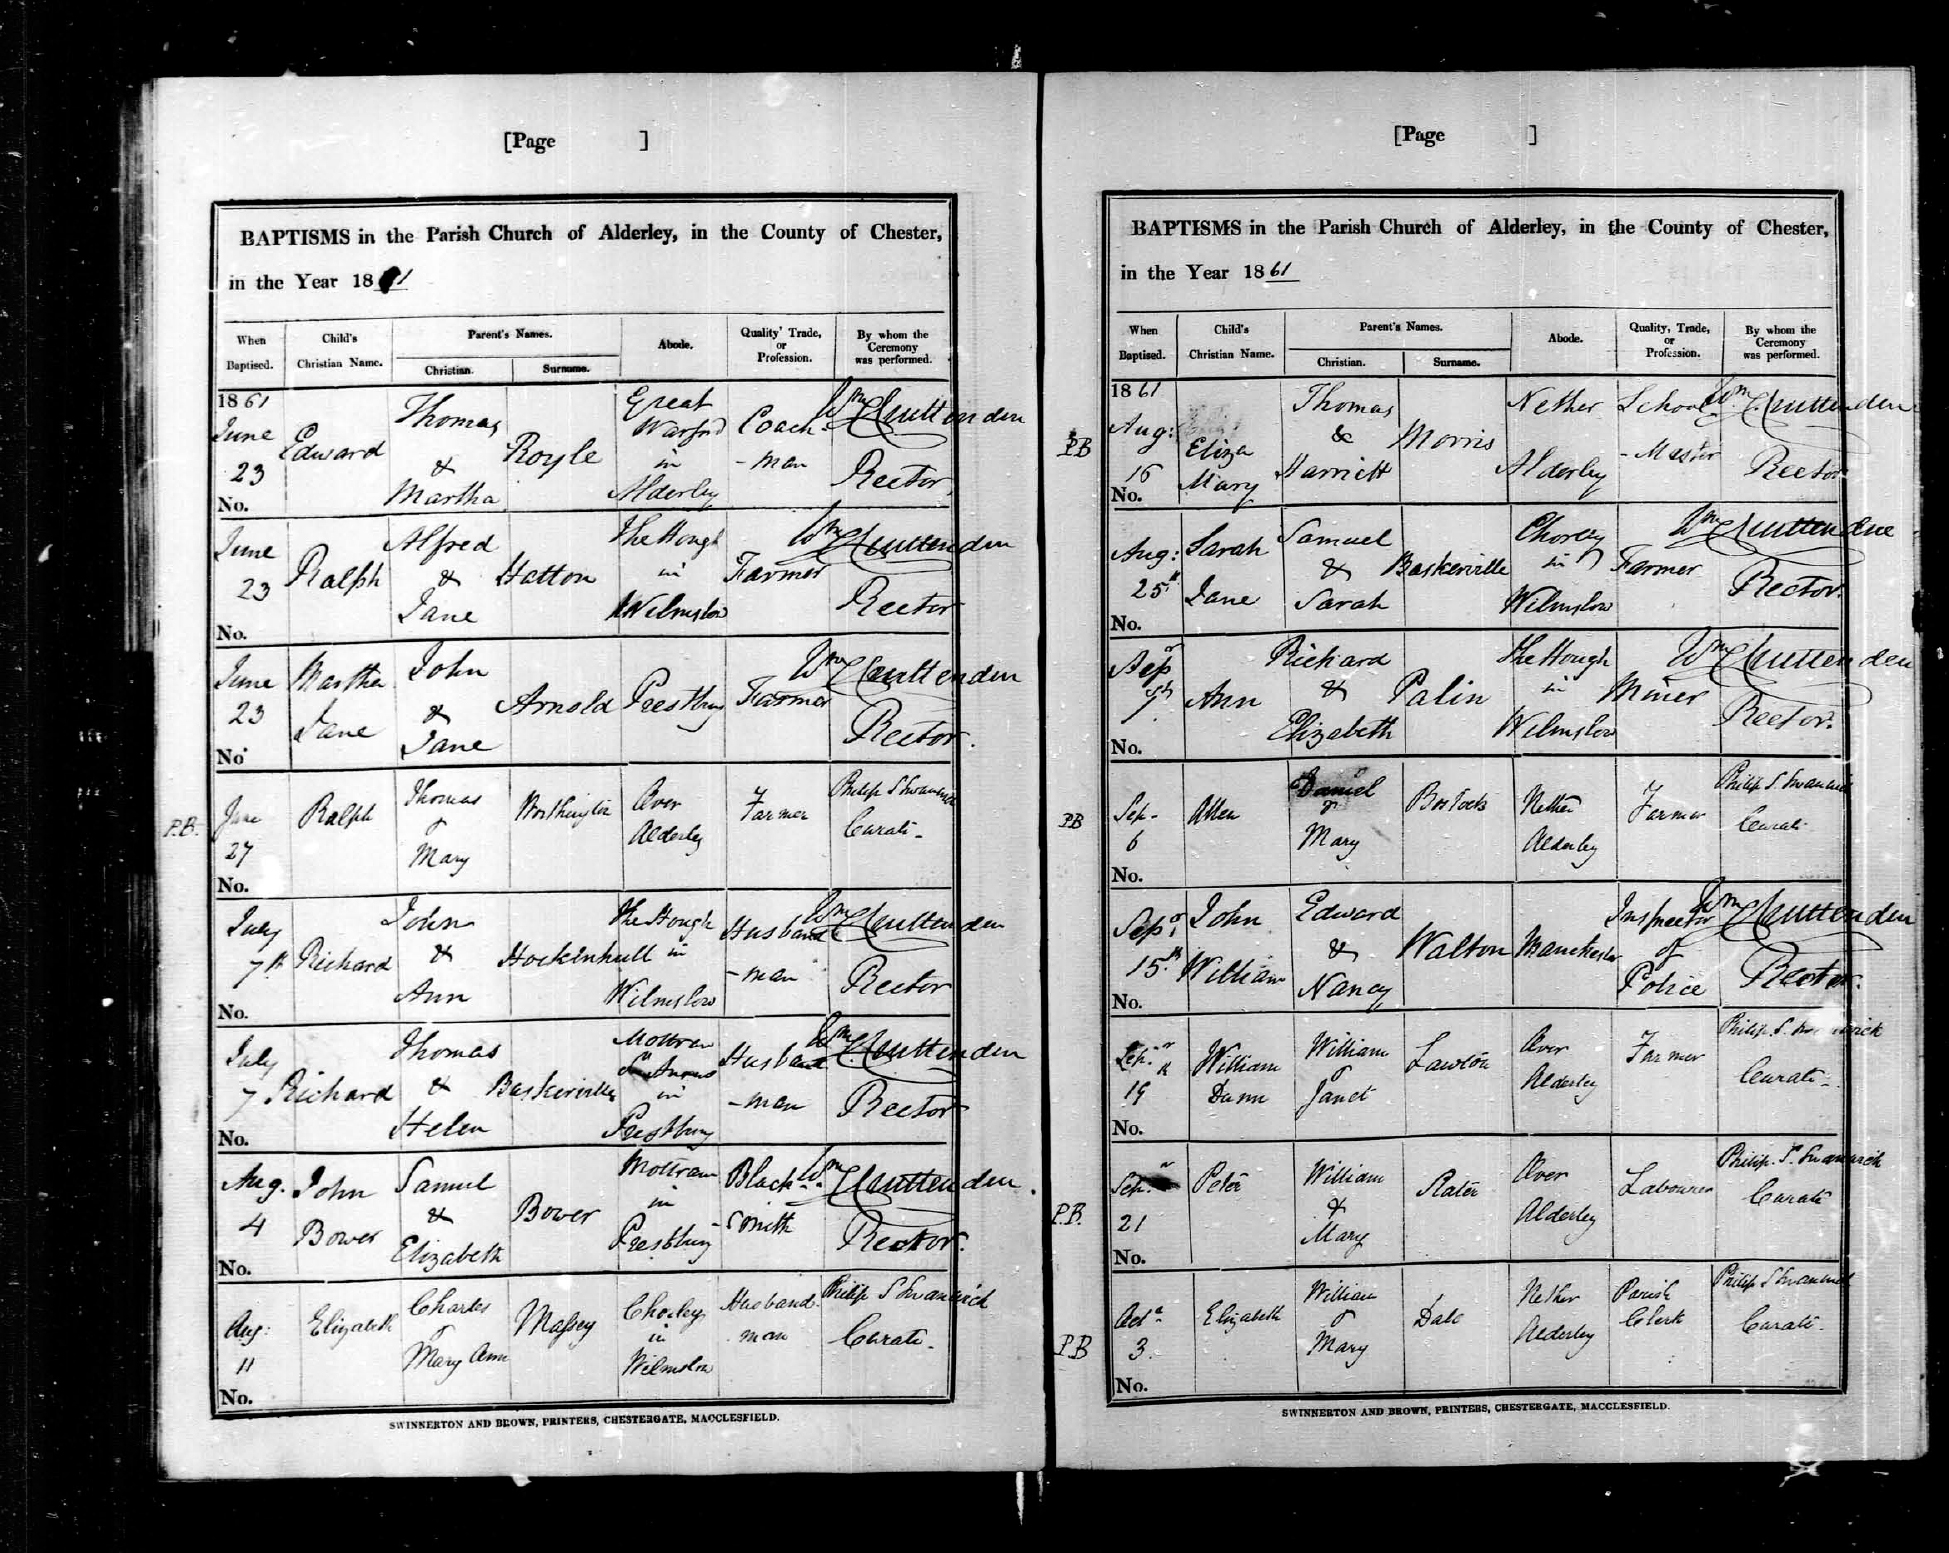 [Page ]
BAPTISMS in the Parish Church of Alderley, in the County of Chester,
in the Year 1861
When Baptised.
Child's Christian Name.
Parent's Names.
Christian.
Surname.
Abode.
Quality, Trade, or Profession.
By whom the Ceremony was performed.
1861
June 23
No.
Edward
Thomas & Martha
Royle
Great Warford in Alderley
Coach-man
Wm Cruttenden Rector
June 23
No.
Ralph
Alfred & Jane
Hatton
The Hough in Wilmslow
Farmer
Wm Cruttenden Rector
June 23
No.
Martha Jane
John & Jane
Arnold
Prestbury
Farmer
Wm Cruttenden Rector.
P.B.
June 27
No.
Ralph
Thomas & Mary
Worthington
Over Alderley
Farmer
Philip S Swanwick Curate
July 7th
No.
Richard
John & Ann
Hockinhull
The Hough in Wilmslow
Husband-man
Wm Cruttenden Rector
July 7
No.
Richard
Thomas & Helen
Baskerville
Mottram St Andrew in Prestbury
Husband-man
Wm Cruttenden Rector
Aug. 4
No.
John Bower
Samuel & Elizabeth
Bower
Mottram in Prestbury
Black-smith
Wm Cruttenden Rector.
Aug: 11
No.
Elizabeth
Charles & Mary Ann
Massey
Chorley in Wilmslow
Husband-man
Philip S Swanwick Curate.
SWINNERTON AND BROWN, PRINTERS, CHESTERGATE, MACCLESFIELD.
[Page ]
BAPTISMS in the Parish Church of Alderley, in the County of Chester,
in the Year 1861
When Baptised.
Child's Christian Name.
Parent's Names.
Christian.
Surname.
Abode.
Quality, Trade, or Profession.
By whom the Ceremony was performed.
1861
PB
Aug: 16
No.
Eliza Mary
Thomas & Harriett
Morris
Nether Alderley
School-Master
Wm Cruttenden Rector
Aug: 25th
No.
Sarah Jane
Samuel & Sarah
Baskerville
Chorley in Wilmslow
Farmer
Wm Cruttenden Rector.
Sepr
No.
Ann
Richard & Elizabeth
Palin
The Hough in Wilmslow
Miner
Wm Cruttenden Rector.
PB
Sep. 6
No.
Allen
Daniel & Mary
Bostock
Nether Alderley
Farmer
Philip S Swanwick Curate
Sepr 15th
No.
John William
Edward & Nancy
Walton
Manchester
Inspector of Police
Wm Cruttenden Rector.
Sepr 19
No.
William Dunn
William & Janet
Lawton
Over Alderley
Farmer
Philip. S. Swanwick Curate.
P.B.
Sepr 21
No.
Peter
William & Mary
Over Alderley
Labourer
Philip. S. Swanwick Curate
PB
Octr 3.
No.
Elizabeth
William & Mary
Dale
Nether Alderley
Parish Clerk
Philip S Swanwick Curate.
SWINNERTON AND BROWN, PRINTERS, CHESTERGATE, MACCLESFIELD.